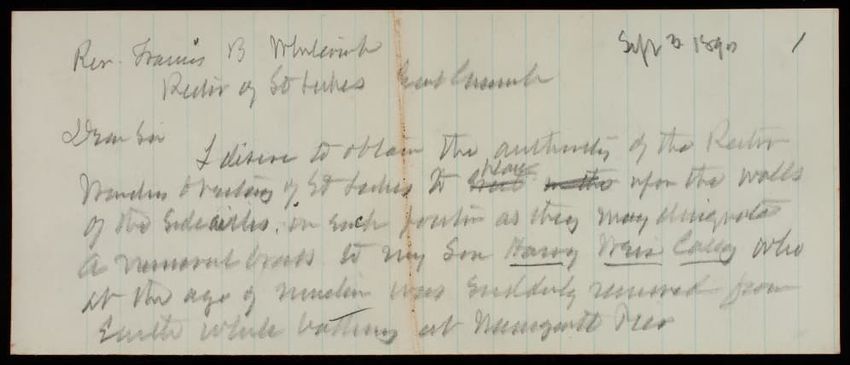 Sept 3 1890 1
Rev. Francis B
Rector of St Lukes East
Dear Sir
I desire to obtain the authority of the Rector
Wardens & Vestry of St Lukes to place upon the walls
of the Side aisles, in such position as they may designate
A memorial brass to my Son Harry Weir Casey who
at the age of nineteen was Suddenly removed from
Earth while bathing at Narragansett Pier